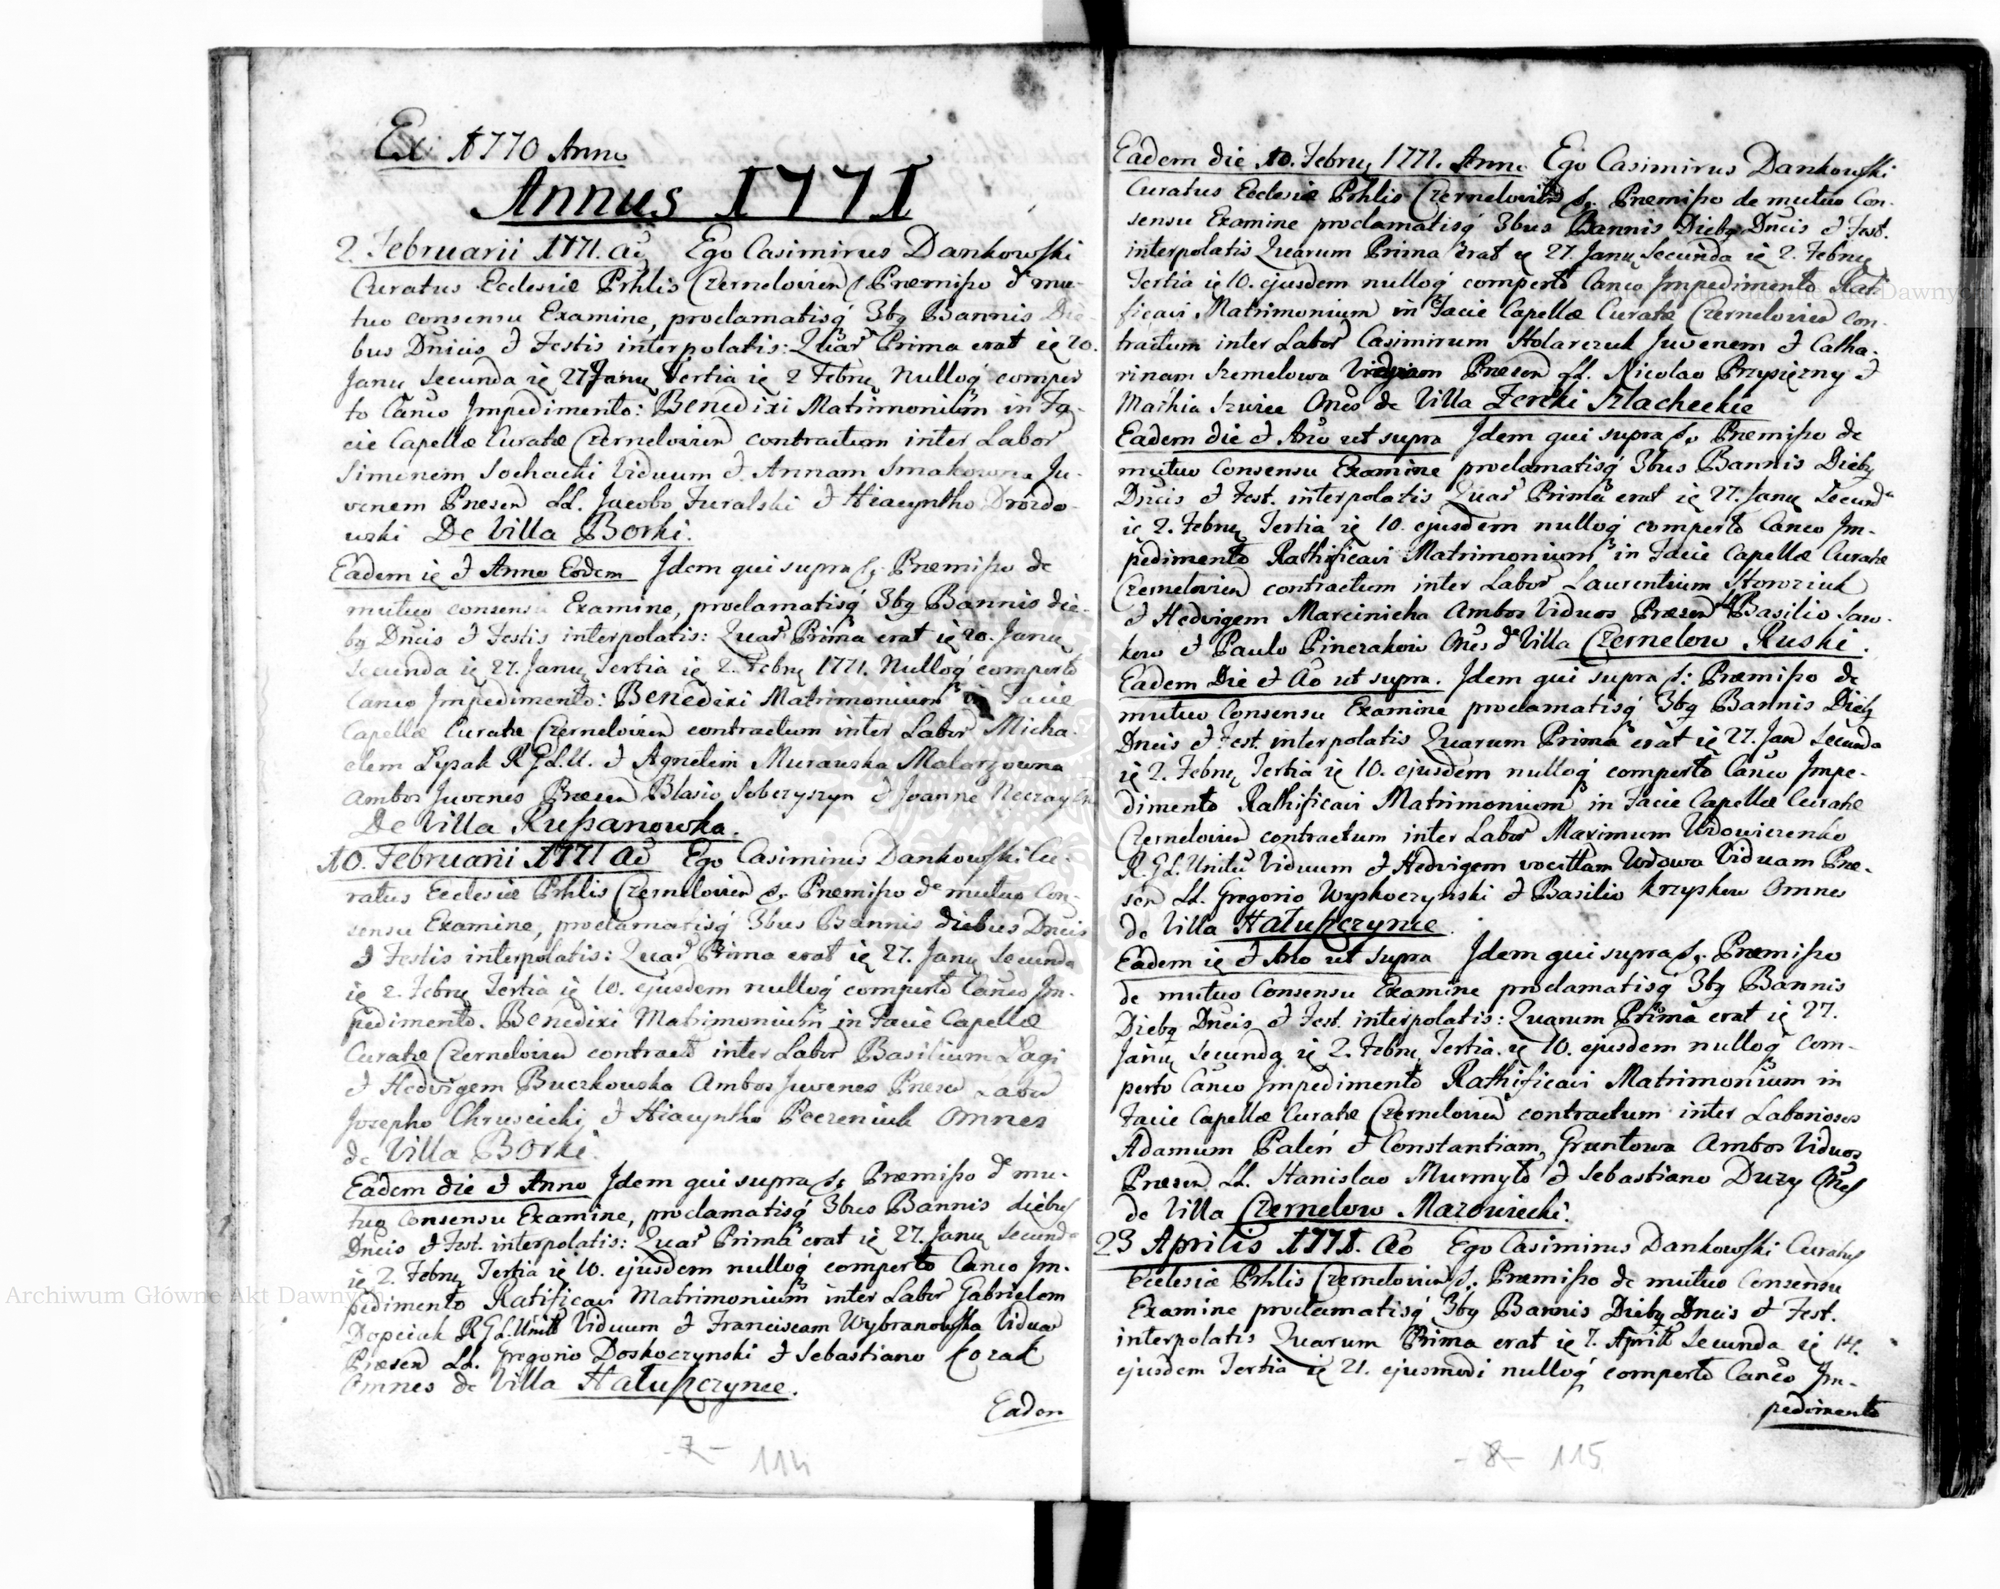 Ex 1770 Anno
Annus 1771
2. Februarii 1771. Ao Ego Casimirus Dankowski
Curatus Ecclesiæ Prhlis Czernelovien s. Præmisso de mu-
tuo consensu Examine, proclamatisq 3bq Bannis Die-
bus Dnicis & Festis interpolatis: Quar Prima erat ie 20.
Janu Secunda ie 27 Janu Tertia ie 2 Febru Nulloq comper
to Canco Impedimento: Benedixi Matrimonium in Fa-
cie Capellæ Curatæ Czernelovien contractum inter Labor
Simonem Sochacki Viduum & Annam Smakowna Ju-
venem Præsen LL. Jacobo Furalski & Hiacyntho Drozdo-
wski De Villa Borki.
Eadem ie & Anno Eodem Idem qui supra s. Præmisso de
mutuo consensu Examine, proclamatisq 3bq Bannis die-
bq Dncis & Festis interpolatis: Quar Prima erat ie 20. Janu
Secunda ie 27. Janu Tertia ie 2. Febru 1771. Nulloq comperto
Canco Impedimento: Benedixi Matrimonium in Facie
Capellæ Curatæ Czernelovien contractum inter Labor Micha-
elem Lysak R.G.L.U. & Agnetem Murawska Malarzowna
Ambos Juvenes Præsen Blasio Sobczyszyn & Joanne
De Villa Russanowka.
10. Februarii 1771 Ao Ego Casimirus Dankowski Cu-
ratus Ecclesiæ Prhlis Czernelovien s. Præmisso de mutuo Con-
sensu Examine, proclamatisq 3bus Bannis diebus Dncis
& Festis interpolatis: Quar Prima erat ie 27. Janu Secunda
ie 2. Febru Tertia ie 10. ejusdem nulloq comperto Canco Im-
pedimento. Benedixi Matrimonium in Facie Capellæ
Curatæ Czernelovien contract inter Labor Basilium Lagi
& Hedvigem Buczkowska Ambos Juvenes Præsen Labor
Josepho Chruscicki & Hiacyntho Peczeniuk Omnes
de Villa Borki.
Eadem die & Anno Idem qui supra s. Præmisso de mu-
tuo Consensu Examine, proclamatisq 3bus Bannis diebus
Dncis & Fest. interpolatis: Quar Prima erat ie 27. Janu Secunda
ie 2. Febru Tertia ie 10. ejusdem nulloq comperto Canco Im-
pedimento Ratificavi Matrimonium inter Labor Gabrielem
Dopciak R.G.L. Unit Viduum & Franciscam Wybranowska Viduas
Præsen LL. Gregorio Doskoczynski & Sebastiano Kozak
Omnes de Villa Hałuszczynce.
Eadem
-7- 114
Eadem die 10. Febru 1771. Anno Ego Casimirus Dankowski
Curatus Ecclesiæ Prhlis Czernelovien s. Præmisso de mutuo Con-
sensu Examine proclamatisq 3bus Bannis Diebq Dncis & Fest.
interpolatis Quarum Prima erat ie 27. Janu Secunda ie 2. Febru
Tertia ie 10. ejusdem nulloq comperto Canco Impedimento Rat-
ficavi Matrimonium in Facie Capellæ Curatæ Czernelovien con-
tractum inter Labor Casimirum Holarczuk Juvenem & Catha-
rinam Szemelowa Viduam Præsen LL. Nicolao Przysiezny &
Mathia Szwiec Ones de Villa Zereki Szlacheckie
Eadem die & Ano ut supra Idem qui supra s. Præmisso de
mutuo Consensu Examine proclamatisq 3bus Bannis Diebq
Dncis & Fest. interpolatis Quar Prima erat ie 27. Janu Secunda
ie 2. Febru Tertia ie 10. ejusdem nulloq comperto Canco Im-
pedimento Rathificavi Matrimonium in Facie Capellæ Curatæ
Czernelovien contractum inter Labor Laurentium Howoziuk
& Hedvigem Marcinicha Ambos Viduos Præsen LL Basilio Saw-
kow & Paulo Pinczakow Ones de Villa Czernelow Ruski.
Eadem Die & Ao ut supra. Idem qui supra s: Præmisso de
mutuo Consensu Examine proclamatisq 3bq Bannis Diebq
Dncis & Fest. interpolatis Quarum Prima erat ie 27. Jan Secunda
ie 2. Febru Tertia ie 10. ejusdem nulloq comperto Canco Impe-
dimento Rathificavi Matrimonium in Facie Capellæ Curatæ
Czernelovien contractum inter Labor Maximum Wdowiczenko
R.G.L. Unitu Viduum & Hedvigem vocittam Wdowa Viduam Præ-
sen LL. Gregorio Wyskoczynski & Basilio Krzyskow Omnes
de Villa Hałuszczynce.
Eadem ie & Ano ut supra Idem qui supra s. Præmisso
de mutuo Consensu Examine proclamatisq 3bq Bannis
Diebq Dncis & Fest. interpolatis: Quarum Prima erat ie 27.
Janu Secunda ie 2. Febru Tertia ie 10. ejusdem nulloq com-
perto Canco Impedimento Rathificavi Matrimonium in
Facie Capellæ Curatæ Czernelovien contractum inter Laboriosos
Adamum Paleń & Constantiam Gruntowa Ambos Viduos
Præsen LL. Stanislao Murmyło & Sebastiano Duzy Ones
de Villa Czernelow Mazowiecki.
23 Aprilis 1771. Ao Ego Casimirus Dankowski Curatus
Ecclesiæ Prhlis Czernelovien s. Præmisso de mutuo Consensu
Examine proclamatisq 3bq Bannis Diebq Dncis & Fest.
interpolatis Quarum Prima erat ie 7. Aprilis Secunda ie 14.
ejusdem Tertia ie 21. ejusmodi nulloq comperto Canco Im-
pedimento
-8- 115
Archiwum Główne Akt Dawnych
Archiwum Główne Akt Dawnych